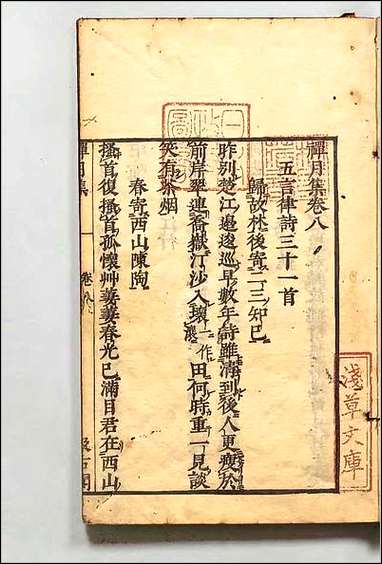 禪月集卷八
五言律詩三十一首
歸故林後寄二三知己
昨別楚江邊逡巡早數年詩雖清到後人更瘦於
前岸翠連喬嶽汀沙入壞一作濃田何時重一見談
笑有茶烟
春寄西山陳陶
搔首復搔首孤懷艸萋萋春光已滿目君在西山
禪月集
卷八
一
汲古閣
淺草文庫